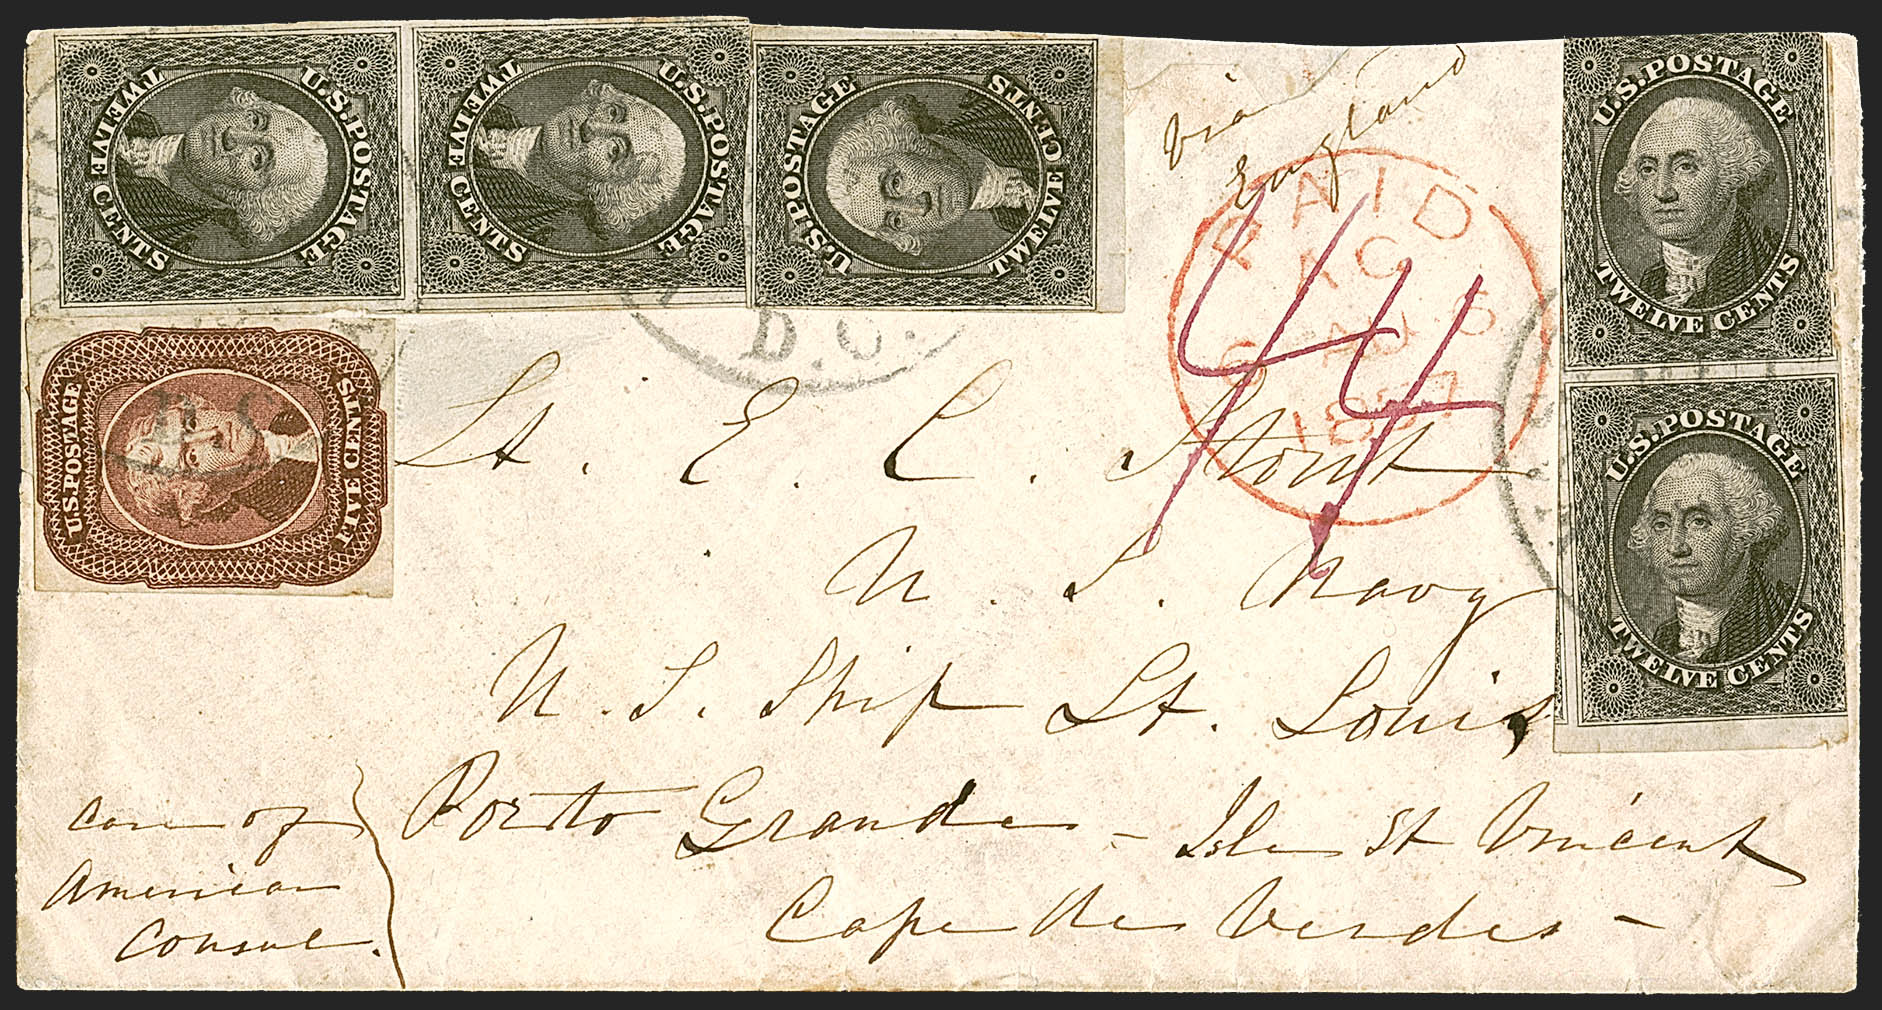 U.S. POSTAGE
TWELVE CENTS
U.S. POSTAGE
TWELVE CENTS
U.S. POSTAGE
TWELVE CENTS
U.S. POSTAGE
TWELVE CENTS
U.S. POSTAGE
TWELVE CENTS
U.S. POSTAGE
FIVE CENTS
via
England
PAID
AC
6 AU 6
1857
44
D.C.
Lt. E. C. Stout
U. S. Navy
U. S. Ship St. Louis,
Porto Grande - Isle St Vincent
Cape de Verdes -
Care of
American
Consul.